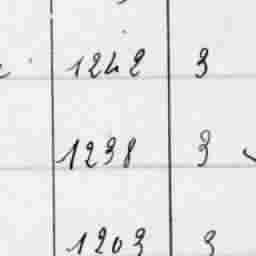 1242 3
1238 3
1203 3